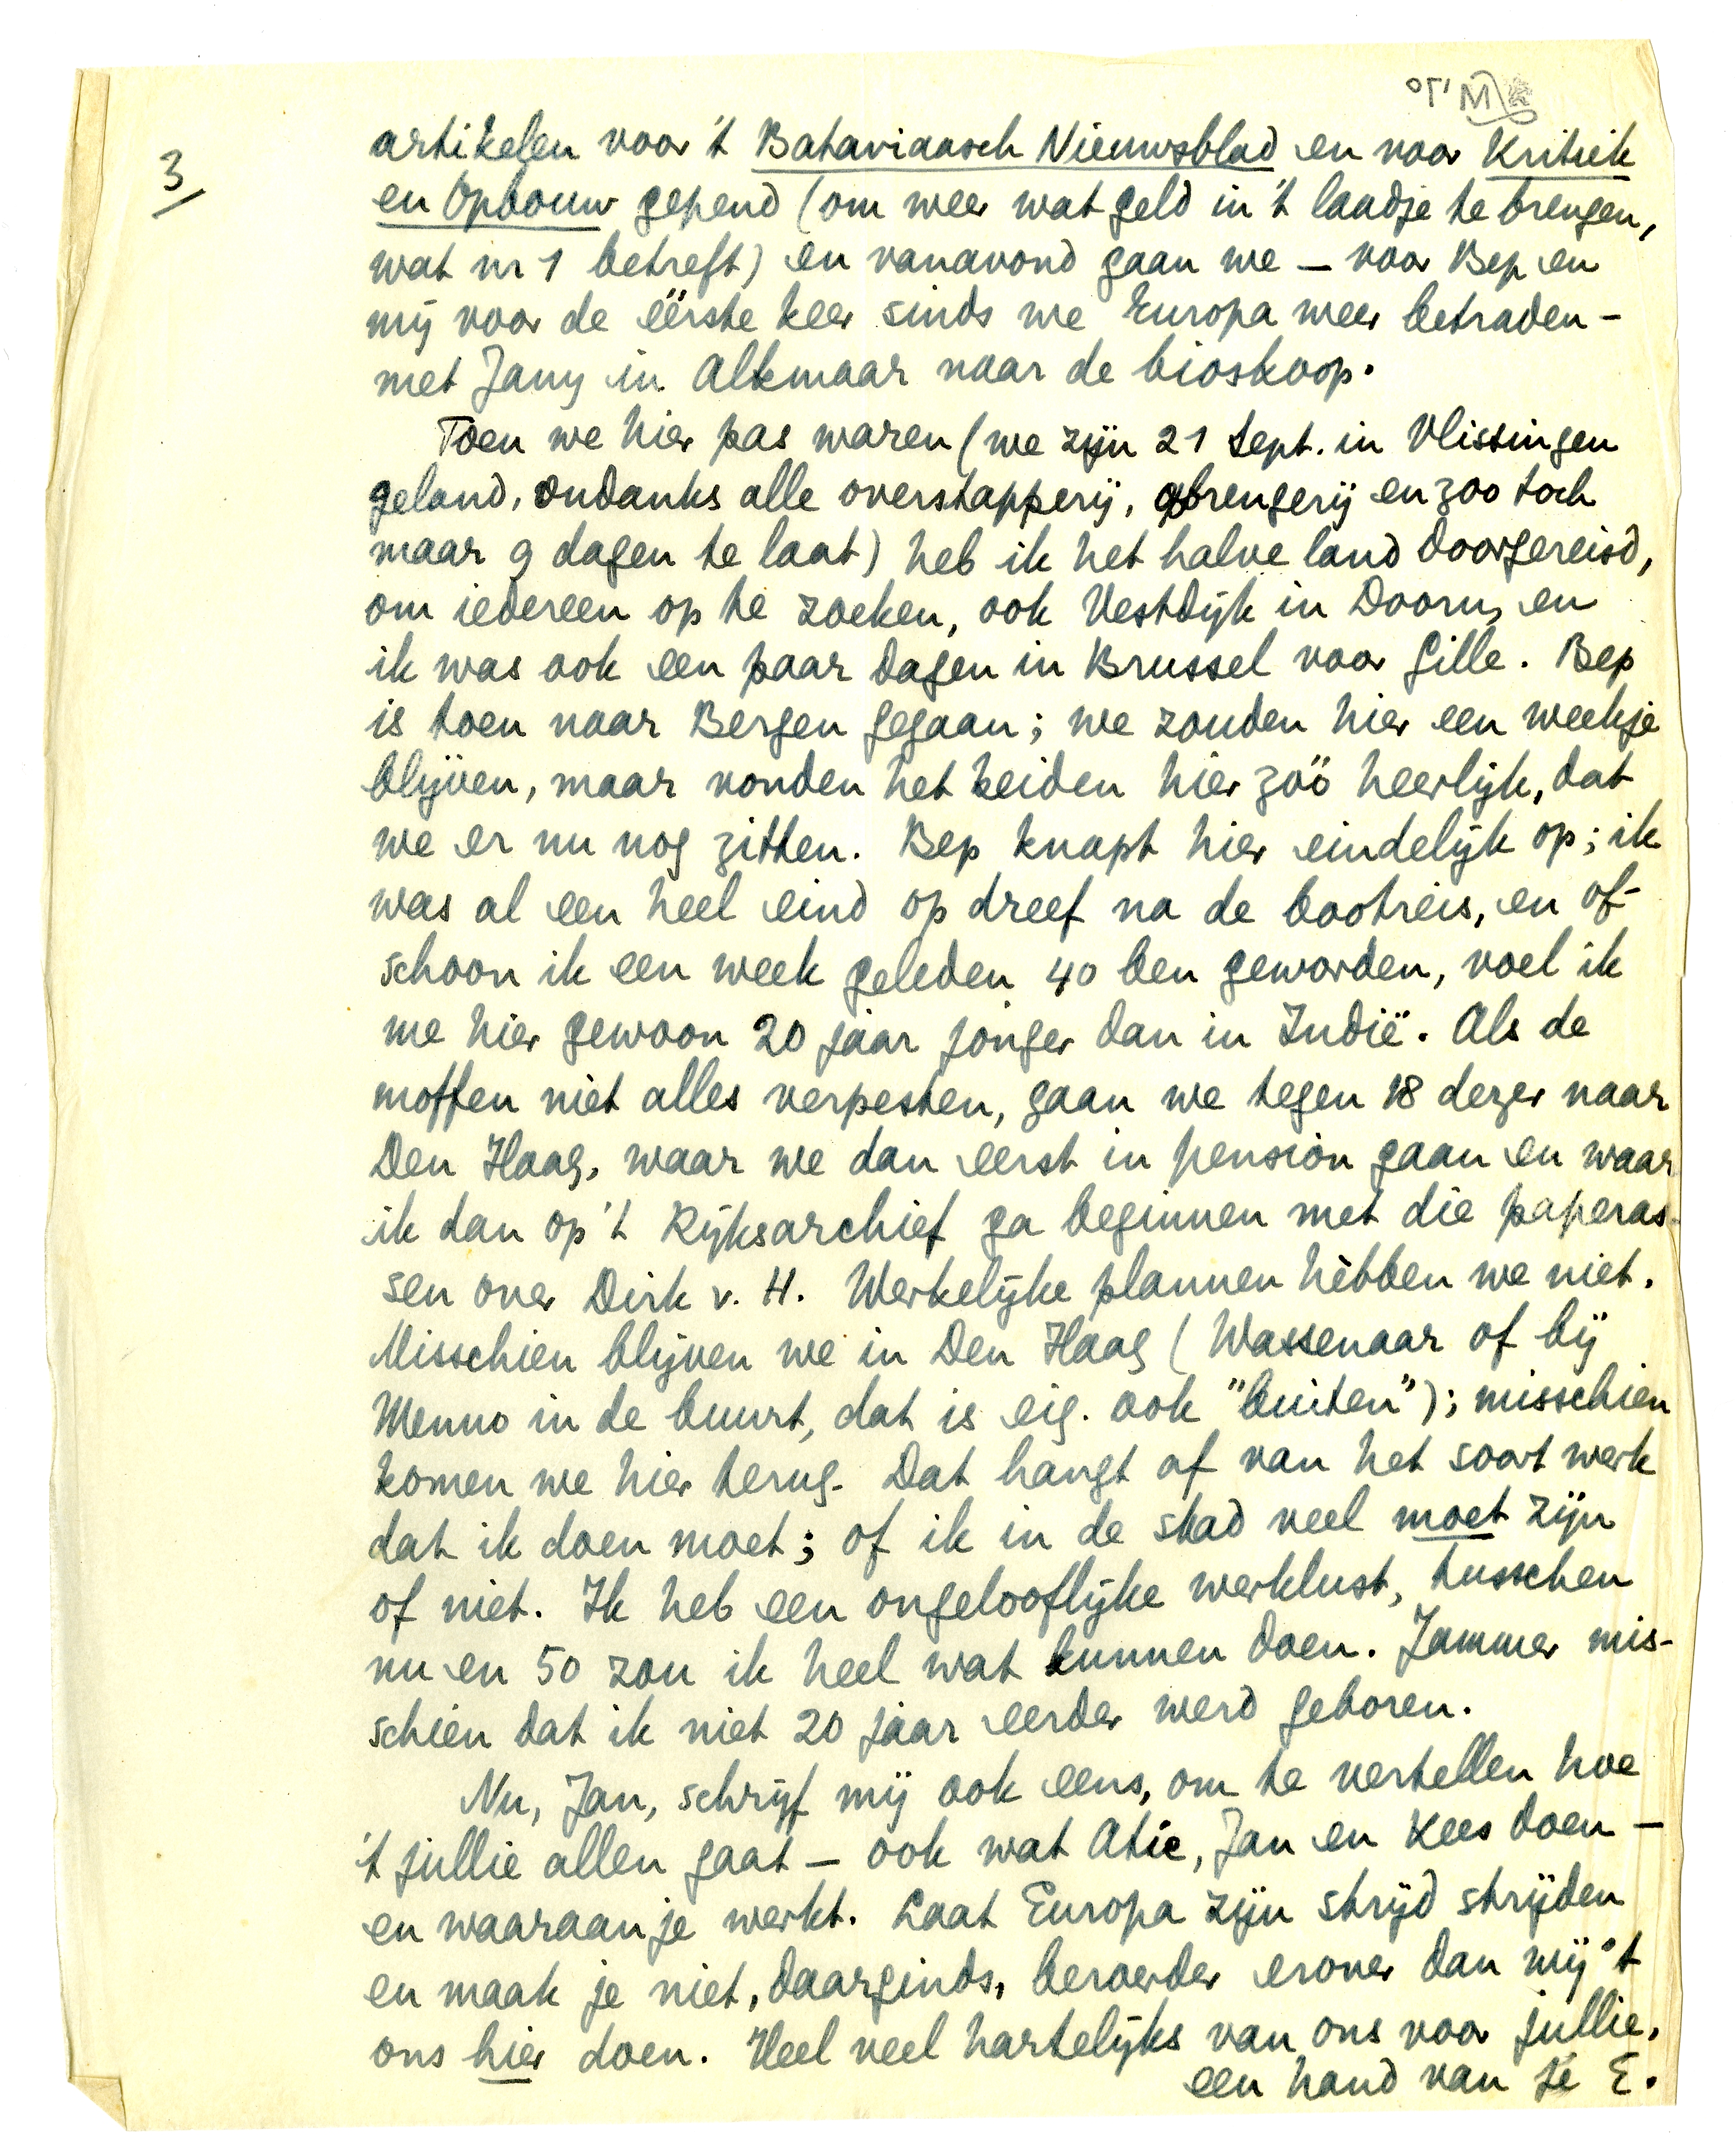 3
artikelen voor 't Bataviaasch Nieuwsblad en voor Kritiek
en Opbouw gepend (om weer wat geld in 't laadje te brengen,
wat nr 1 betreft) en vanavond gaan we — voor Bep en
mij voor de éérste keer sinds we Europa weer betraden —
met Jany in Alkmaar naar de bioskoop.
Toen we hier pas waren (we zijn 21 Sept. in Vlissingen
geland, ondanks alle overstapperij, opbrengerij en zoo toch
maar 9 dagen te laat) heb ik het halve land doorgereisd,
om iedereen op te zoeken, ook Vestdijk in Doorn, en
ik was ook een paar dagen in Brussel voor Gille. Bep
is toen naar Bergen gegaan; we zouden hier een weekje
blijven, maar vonden het beiden hier zóó heerlijk, dat
we er nu nog zitten. Bep knapt hier eindelijk op; ik
was al een heel eind op dreef na de bootreis, en of-
schoon ik een week geleden 40 ben geworden, voel ik
me hier gewoon 20 jaar jonger dan in Indië. Als de
moffen niet alles verpesten, gaan we tegen 18 dezer naar
Den Haag, waar we dan eerst in pension gaan en waar
ik dan op 't Rijksarchief ga beginnen met die paperas-
sen over Dirk v. H. Werkelijke plannen hèbben we niet.
Misschien blijven we in Den Haag (Wassenaar of bij
Menno in de buurt, dat is eig. ook "buiten"); misschien
komen we hier terug. Dat hangt af van het soort werk
dat ik doen moet; of ik in de stad veel moet zijn
of niet. Ik heb een ongelooflijke werklust, tusschen
nu en 50 zou ik heel wat kunnen doen. Jammer mis-
schien dat ik niet 20 jaar eerder werd geboren.
Nu, Jan, schrijf mij ook eens, om te vertellen hoe
't jullie allen gaat — ook wat Atie, Jan en Kees doen —
en waaraan je werkt. Laat Europa zijn strijd strijden
en maak je niet, daarginds, beroerder erover dan wij 't
ons hier doen. Heel veel hartelijks van ons voor jullie,
een hand van je E.